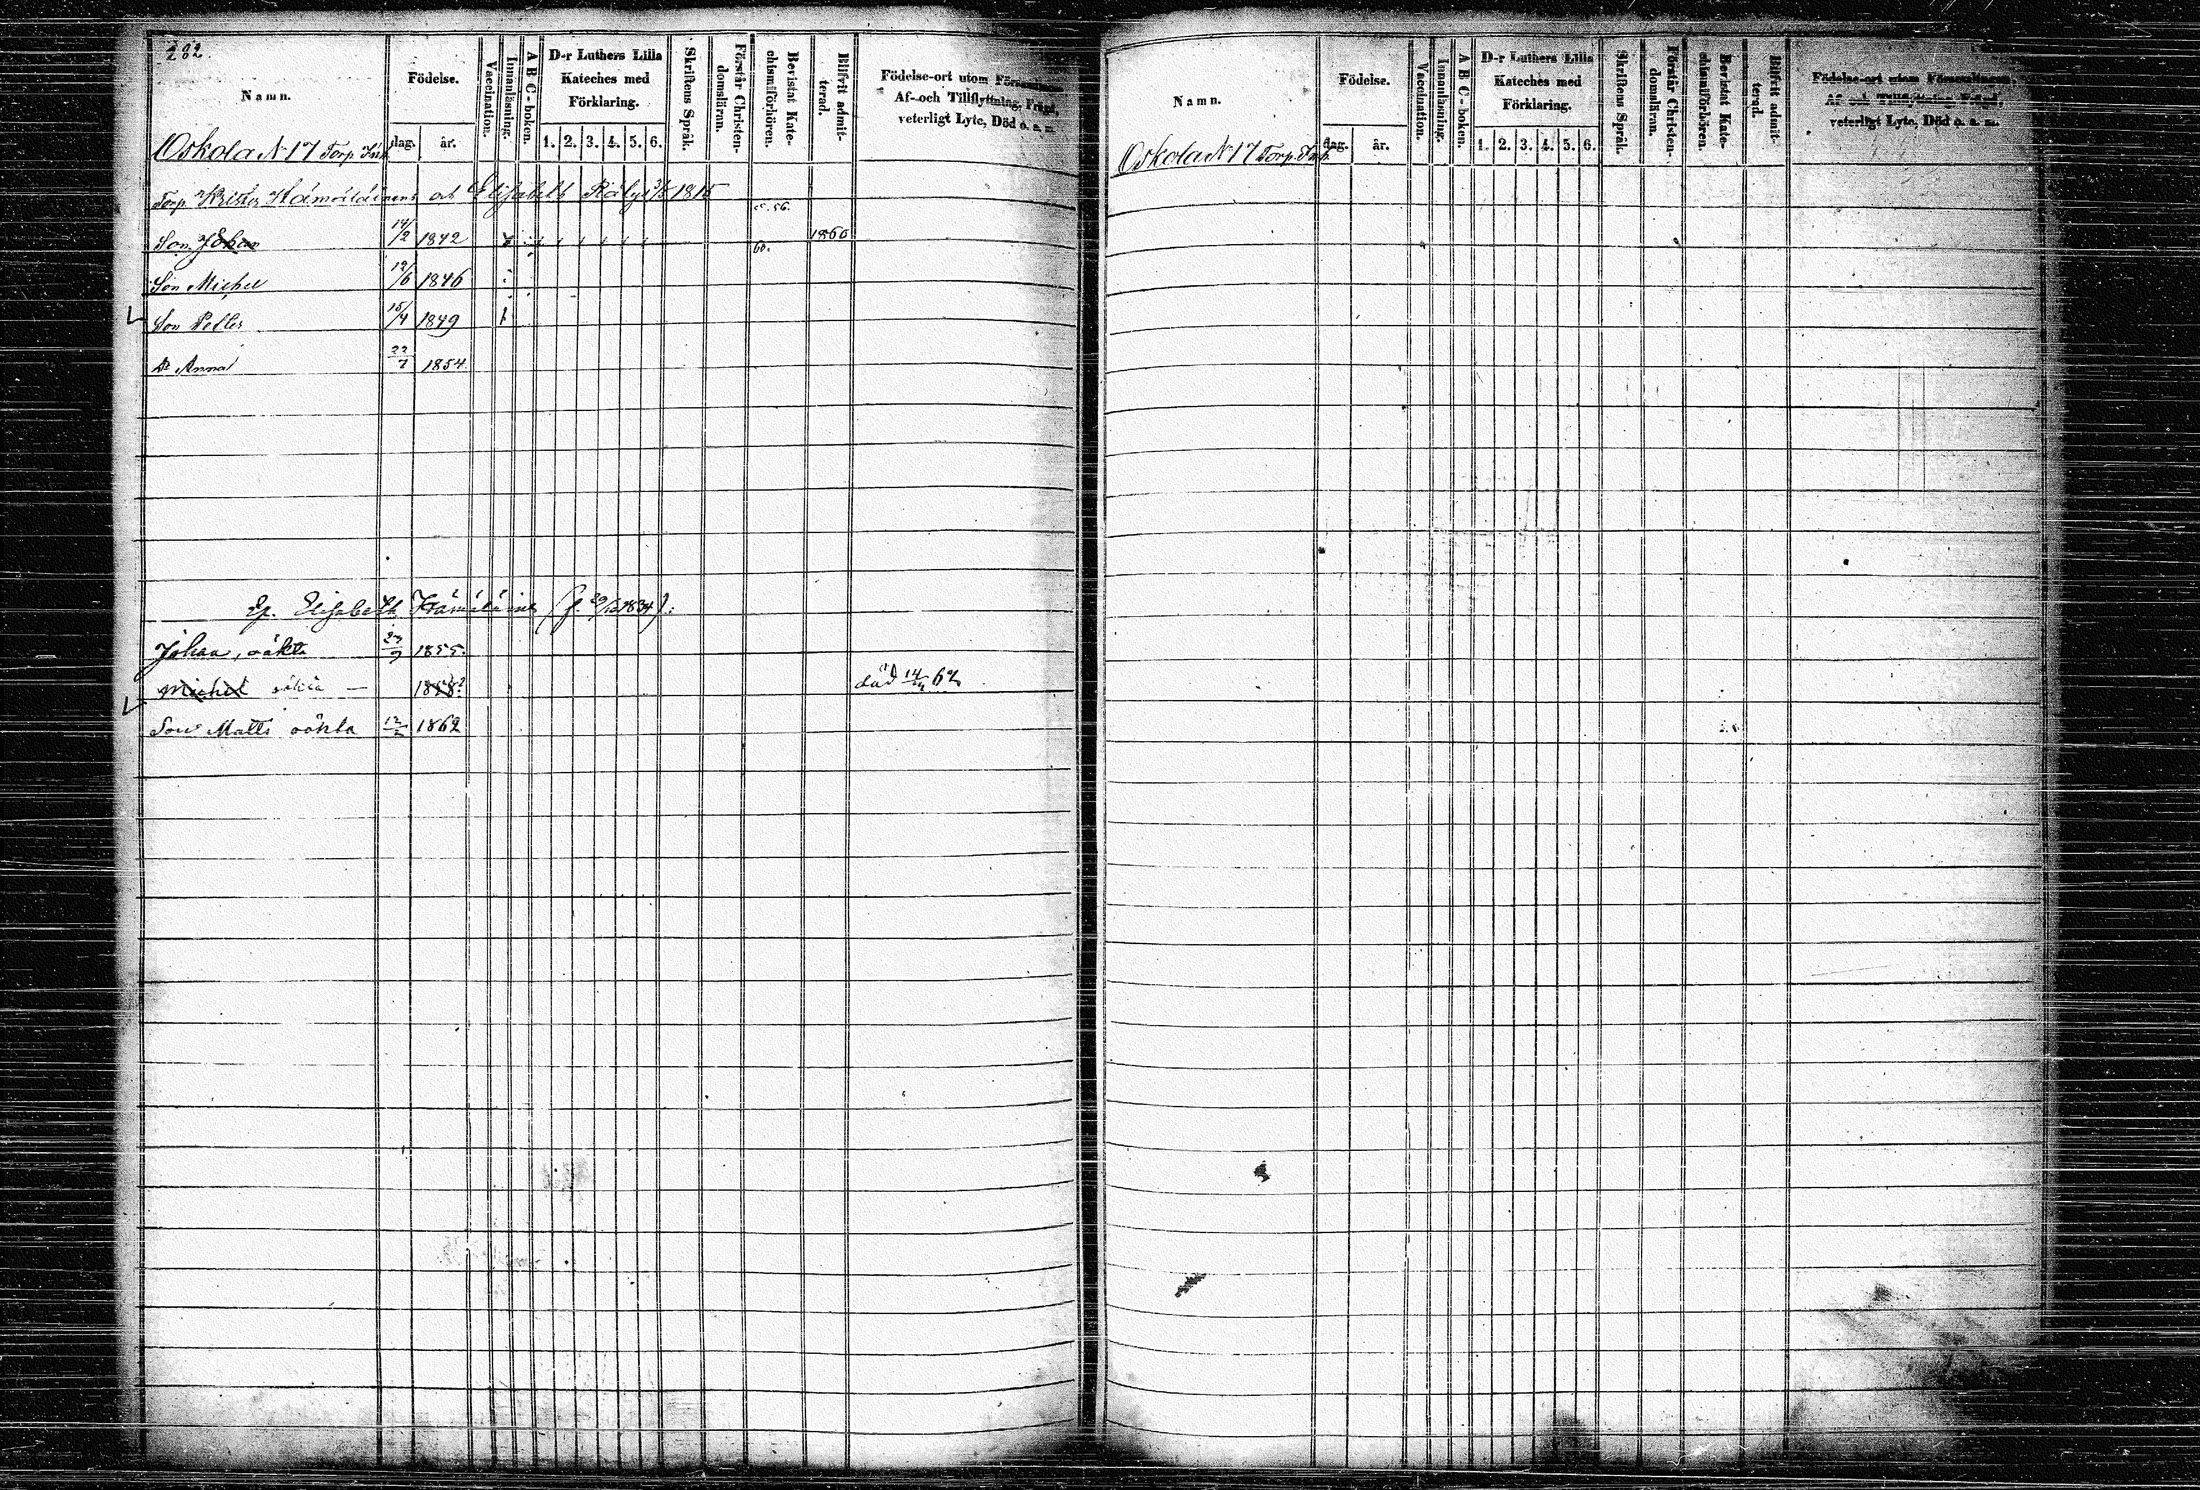 282.
Namn.
Födelse.
dag. år.
Vaccination.
Innanläsning.
A B C-boken.
D-r Luthers Lilla Kateches med Förklaring.
1. 2. 3. 4. 5. 6.
Skriftens Språk.
Förstår Christendomsläran.
Bevistat Katechismiförhören.
Blifvit admitterad.
Födelse-ort utom Församlingen,
Af- och Tillflyttning, Frägd,
veterligt Lyte, Död o. s. v.
Oskola N 17 Torp. Inh.
Torp. Krister Hämäläinens och Elisabeth 1815
56.
Son Johan 14/2 1842 60. 1860
Son Michel 12/6 1846
Son Petter 15/4 1849
Dr Anna 22/7 1854
Ep. Elisabeth Hämäläines (f. 29/12 1834):
Johan, oäkta 23/9 1855.
Michel oäkta — 1858?
död 14/4 62
Son Matts oäkta 12/2 1862
Namn.
Födelse.
dag. år.
Vaccination.
Innanläsning.
A B C-boken.
D-r Luthers Lilla Kateches med Förklaring.
1. 2. 3. 4. 5. 6.
Skriftens Språk.
Förstår Christendomsläran.
Bevistat Katechismiförhören.
Blifvit admitterad.
Födelse-ort utom Församlingen,
Af- och Tillflyttning, Frägd,
veterligt Lyte, Död o. s. v.
Oskola N 17 Torp. Inh.